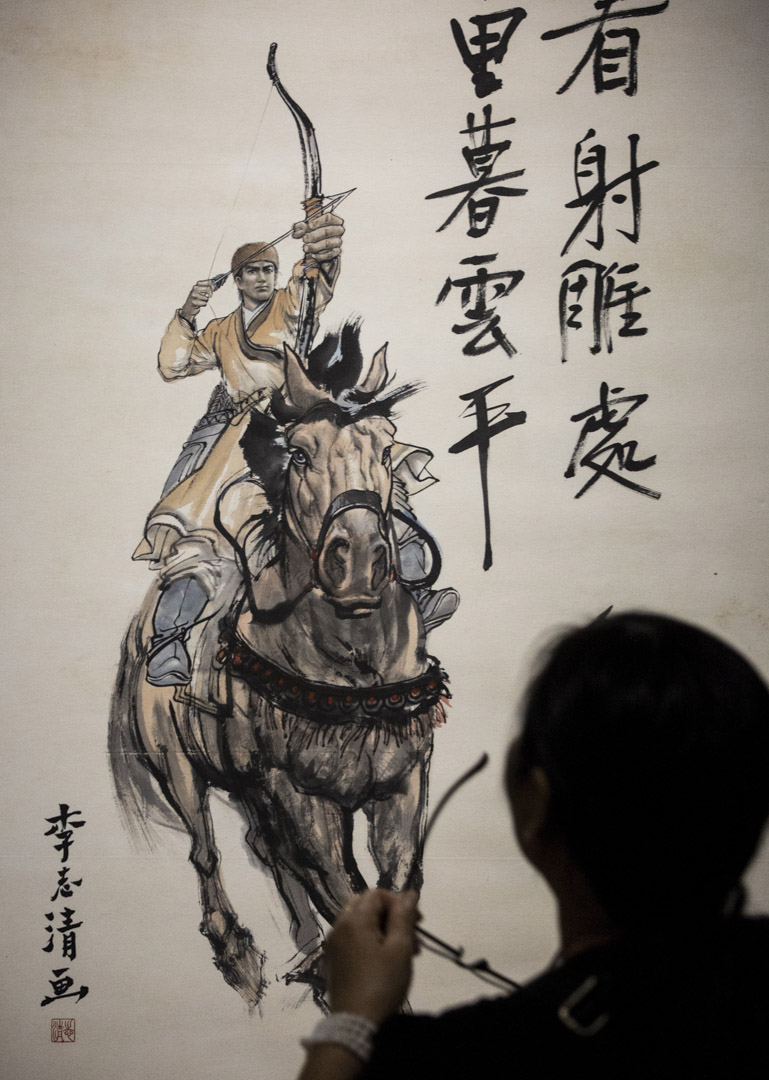 看射雕處
里暮雲平
李志清画